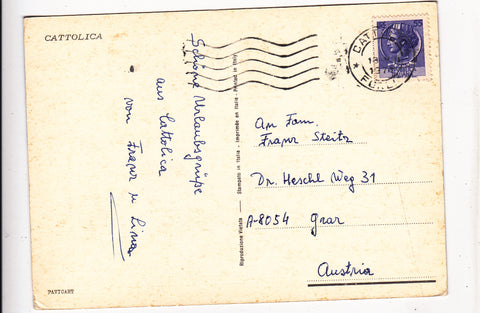 CATTOLICA
Schöne Urlaubsgrüße
aus Cattolica
von Franz u Lina
PAVICART
Riproduzione Vietata Stampato in Italia - Imprimée en Italie - Printed in Italy
CATTOLICA
FORLI
An Fam.
Franz Steitz
Dr. Heschl Weg 31
A-8054 Graz
Austria